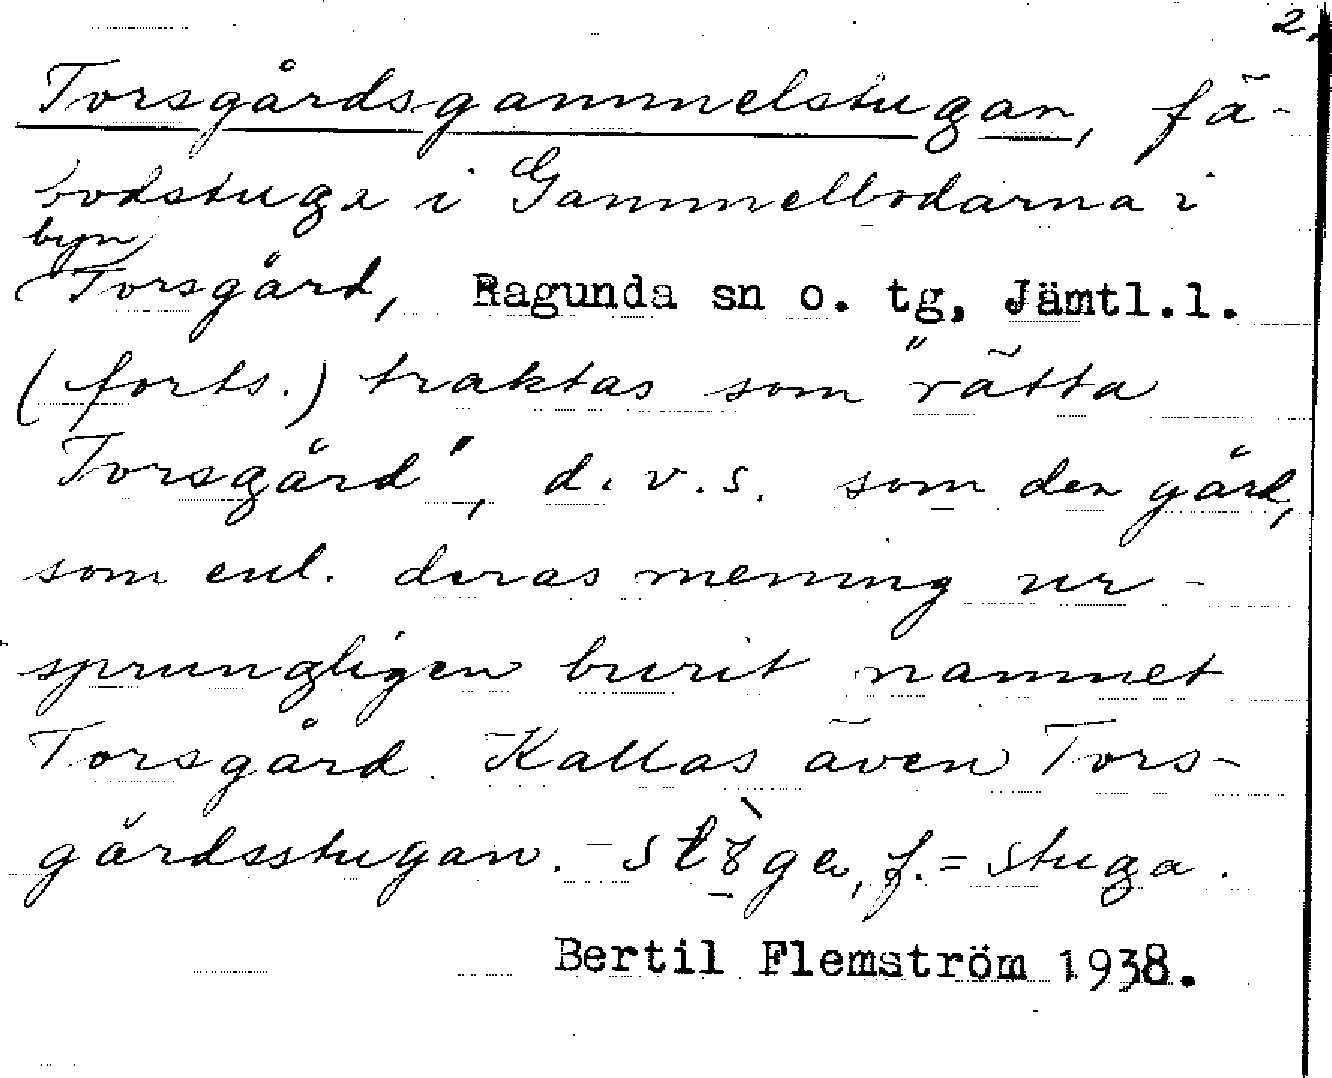 2.
Torsgårdsgammelstugan, fä-
bodstuga i Gammelbodarna i
byn
Torsgård, Ragunda sn o. tg, Jämtl.l.
(forts.) traktas som "rätta
Torsgård", d.v.s. som den gård,
som enl. deras mening ur-
sprungligen burit namnet
Torsgård. Kallas även Tors-
gårdsstugan. – f. = stuga.
Bertil Flemström 1938.